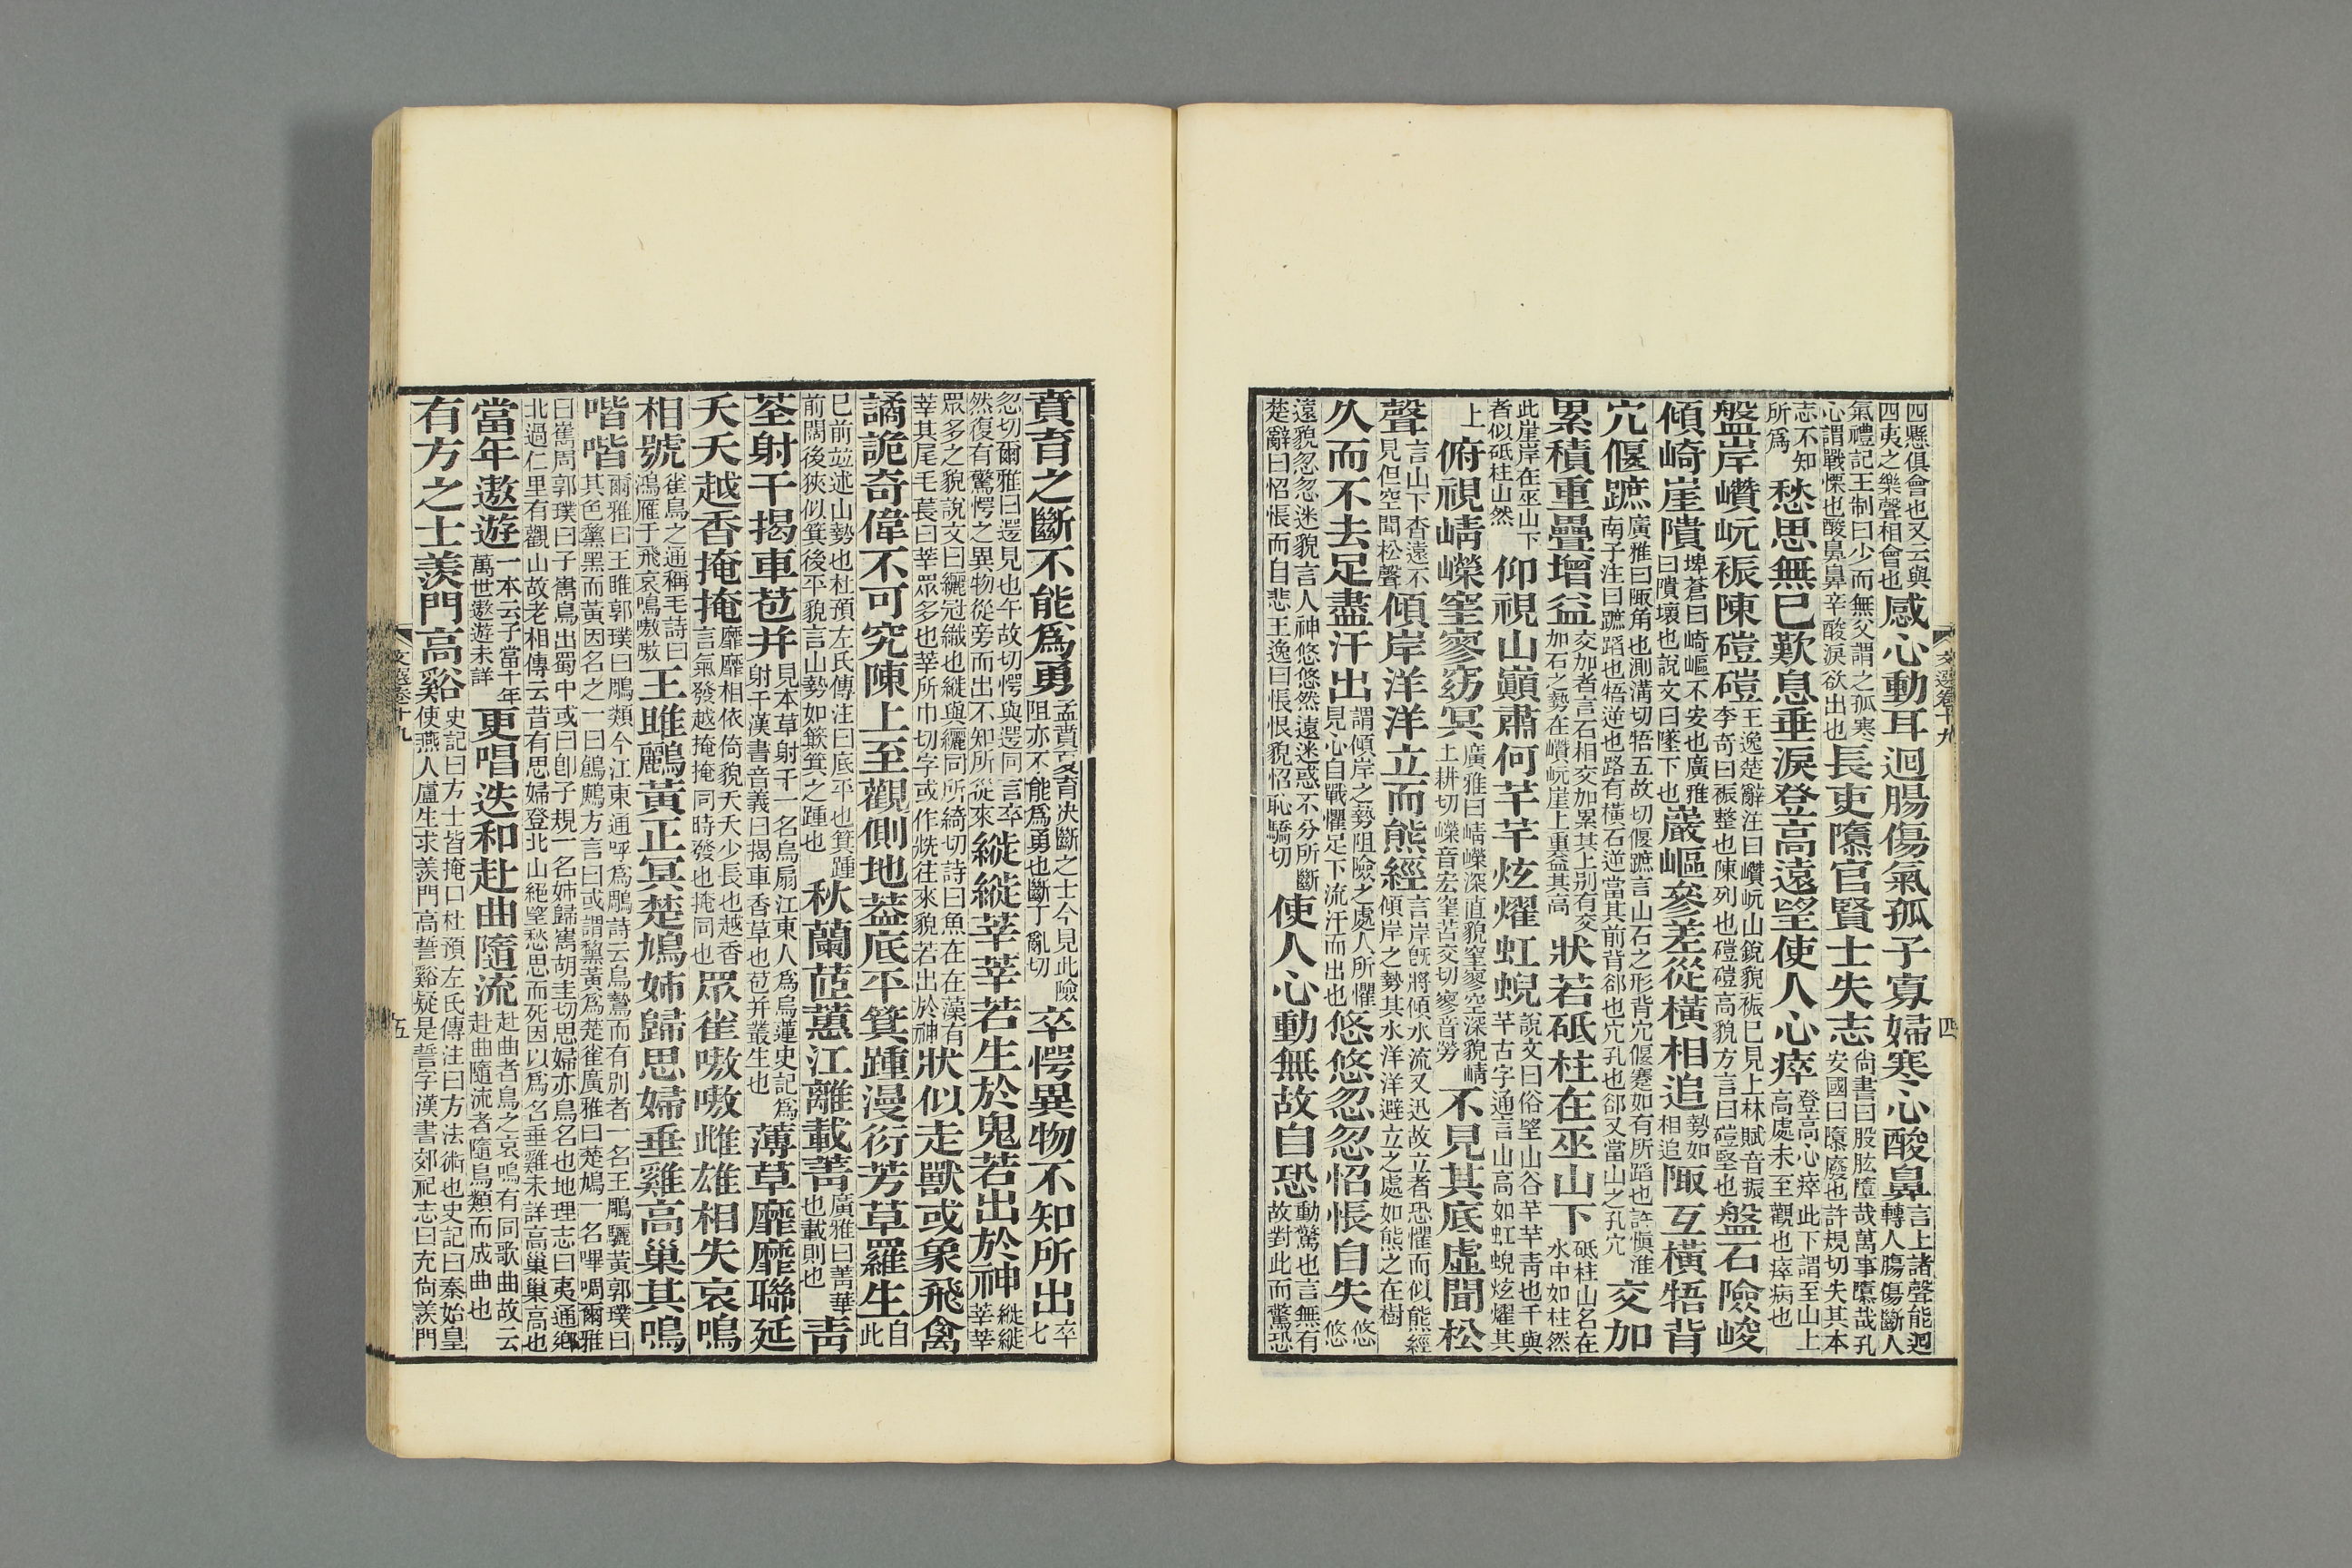 四懸俱會也又云與四夷之樂聲相會也感心動耳迴腸傷氣孤子寡婦寒心酸鼻言上諸聲能迴轉人腸傷斷人
氣禮記王制曰少而無父謂之孤寒心謂戰慄也酸鼻鼻辛酸淚欲出也長吏隳官賢士失志尙書曰股肱墮哉萬事隳哉孔安國曰隳廢也許規切失其本
志不知所爲愁思無已歎息垂淚登高遠望使人心瘁登高心瘁此下謂至山上高處未至觀也瘁病也
盤岸巑岏裖陳磑磑王逸楚辭注曰巑岏山銳貌裖已見上林賦音振李奇曰裖整也陳列也磑磑高貌方言曰磑堅也盤石險峻
傾崎崖隤埤蒼曰崎嶇不安也廣雅曰隤壞也說文曰墜下也巖嶇參差從橫相追勢如相追陬互橫牾背
穴偃蹠廣雅曰陬角也測溝切牾五故切偃蹠言山石之形背穴偃蹇如有所蹈也許愼淮南子注曰蹠蹈也牾逆也路有橫石逆當其前背郤也穴孔也郤又當山之孔穴交加
累積重疊增益交加者言石相交加累其上别有交加石之勢在巑岏崖上重益其高狀若砥柱在巫山下砥柱山名在水中如柱然
此崖岸在巫山下者似砥柱山然仰視山巔肅何芊芊炫燿虹蜺說文曰俗望山谷芊芊靑也千與芊古字通言山高如虹蜺炫燿其
上俯視崝嶸窐寥窈冥廣雅曰崝嶸深直貌窐寥空深貌崝土耕切嶸音宏窐苦交切寥音勞不見其底虛聞松
聲言山下杳遠不見但空聞松聲傾岸洋洋立而熊經言岸旣將傾水流又迅故立者恐懼而似熊經傾岸之勢其水洋洋避立之處如熊之在樹
久而不去足盡汗出謂傾岸之勢阻險之處人所懼見心自戰懼足下流汗而出也悠悠忽忽怊悵自失悠悠
遠貌忽忽迷貌言人神悠悠然遠迷惑不分所斷楚辭曰怊悵而自悲王逸曰悵恨貌怊恥驕切使人心動無故自恐動驚也言無有故對此而驚恐
文選卷十九
四
賁育之斷不能爲勇孟賁夏育决斷之士今見此險阻亦不能爲勇也斷丁亂切卒愕異物不知所出卒七
忽切爾雅曰遌見也午故切愕與遌同言卒然復有驚愕之異物從旁而出不知所從來縰縰莘莘若生於鬼若出於神縰縰莘莘
眾多之貌說文曰纚冠織也縰與纚同所綺切詩曰魚在在藻有莘其尾毛萇曰莘眾多也莘所巾切字或作兟往來貌若出於神狀似走獸或象飛禽
譎詭奇偉不可究陳上至觀側地葢底平箕踵漫衍芳草羅生自此
已前竝述山勢也杜預左氏傳注曰底平也箕踵前闊後狹似箕後平貌言山勢如簸箕之踵也秋蘭茝蕙江離載菁廣雅曰菁華也載則也靑
荃射干揭車苞并見本草射干一名烏扇江東人爲烏蓮史記爲射干漢書音義曰揭車香草也苞并叢生也薄草靡靡聯延
夭夭越香掩掩靡靡相依倚貌夭夭少長也越香言氣發越掩掩同時發也掩同也眾雀嗷嗷雌雄相失哀鳴
相號雀鳥之通稱毛詩曰鴻雁于飛哀鳴嗷嗷王雎鸝黃正冥楚鳩姊歸思婦垂雞高巢其鳴
喈喈爾雅曰王雎郭璞曰鵰類今江東通呼爲鵰詩云鳥鷙而有別者一名王鵰驪黃郭璞曰其色黧黑而黃因名之一曰鶬鶊方言曰或謂黧黃爲楚雀廣雅曰楚鳩一名嗶啁爾雅
曰巂周郭璞曰子巂鳥出蜀中或曰卽子規一名姊歸巂胡圭切思婦亦鳥名也地理志曰夷通鄉北過仁里有觀山故老相傳云昔有思婦登北山絕望愁思而死因以爲名垂雞未詳高巢巢高也
當年遨遊一本云子當千年萬世遨遊未詳更唱迭和赴曲隨流赴曲者鳥之哀鳴有同歌曲故云赴曲隨流者隨鳥類而成曲也
有方之士羨門高谿史記曰方士皆掩口杜預左氏傳注曰方法術也史記曰秦始皇使燕人盧生求羨門高誓谿疑是誓字漢書郊祀志曰充尙羨門
文選卷十九
五